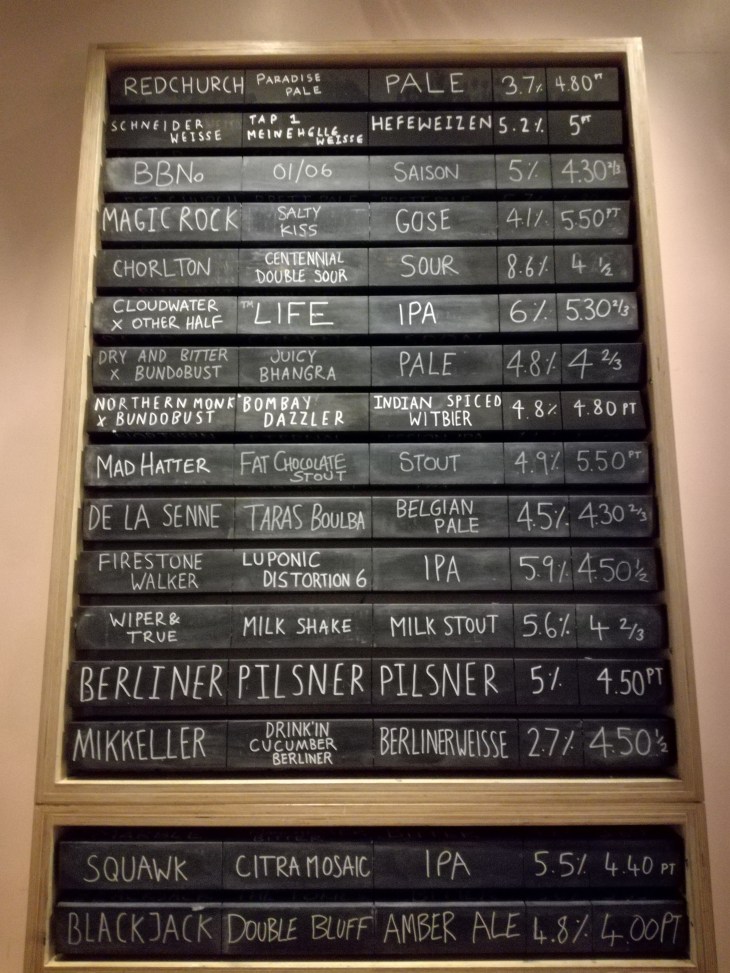 REDCHURCH PARADISE PALE PALE 3.7% 4.80PT
SCHNEIDER WEISSE TAP 1 MEINE HELLE WEISSE HEFEWEIZEN 5.2% 5PT
BBNo 01/06 SAISON 5% 4.30 2/3
MAGIC ROCK SALTY KISS GOSE 4.1% 5.50PT
CHORLTON CENTENNIAL DOUBLE SOUR SOUR 8.6% 4 1/2
CLOUDWATER X OTHER HALF ™LIFE IPA 6% 5.30 2/3
DRY AND BITTER X BUNDOBUST JUICY BHANGRA PALE 4.8% 4 2/3
NORTHERN MONK X BUNDOBUST BOMBAY DAZZLER INDIAN SPICED WITBIER 4.8% 4.80 PT
MAD HATTER FAT CHOCOLATE STOUT STOUT 4.9% 5.50PT
DE LA SENNE TARAS BOULBA BELGIAN PALE 4.5% 4.30 2/3
FIRESTONE WALKER LUPONIC DISTORTION 6 IPA 5.9% 4.50 1/2
WIPER & TRUE MILK SHAKE MILK STOUT 5.6% 4 2/3
BERLINER PILSNER PILSNER 5% 4.50PT
MIKKELLER DRINK'IN CUCUMBER BERLINER BERLINERWEISSE 2.7% 4.50 1/2
SQUAWK CITRA MOSAIC IPA 5.5% 4.40 PT
BLACKJACK DOUBLE BLUFF AMBER ALE 4.8% 4.00PT